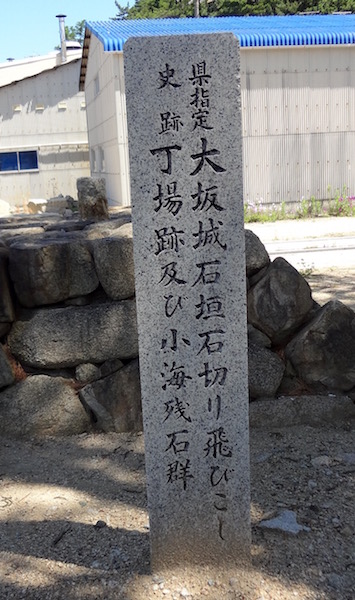 県指定 大坂城石垣石切り飛びこし
史跡 丁場跡及び小海残石群